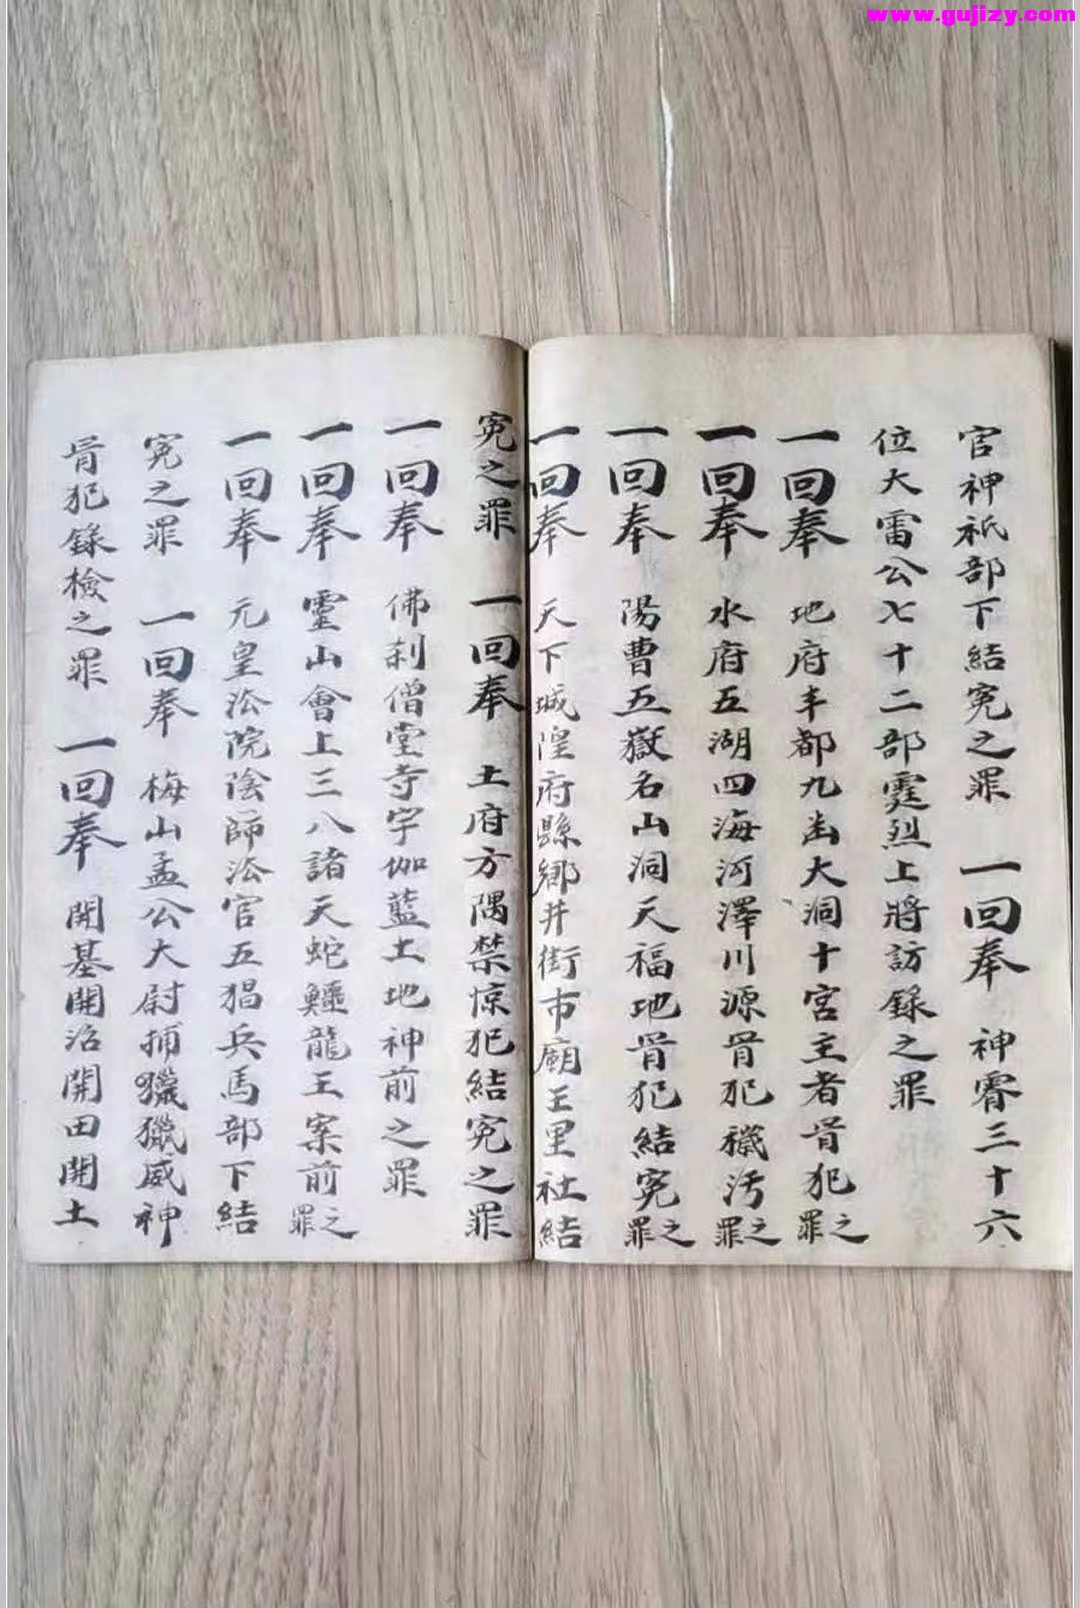 www.gujizy.com
官神祇部下結冤之罪 一回奉 神霄三十六
位大雷公七十二部霆烈上將訪錄之罪
一回奉 地府丰都九出大洞十宮主者冐犯之罪
一回奉 水府五湖四海河澤川源冐犯穢污之罪
一回奉 陽曹五嶽名山洞天福地冐犯結冤之罪
一回奉 天下城隍府縣鄉井街市廟王里社結
冤之罪 一回奉 土府方隅禁惊犯結冤之罪
一回奉 佛刹僧堂寺宇伽藍土地神前之罪
一回奉 靈山會上三八諸天蛇鱷龍王案前之罪
一回奉 元皇法院陰師法官五猖兵馬部下結
冤之罪 一回奉 梅山孟公大尉捕獵獵威神
冐犯錄檢之罪 一回奉 開基開沿開田開土